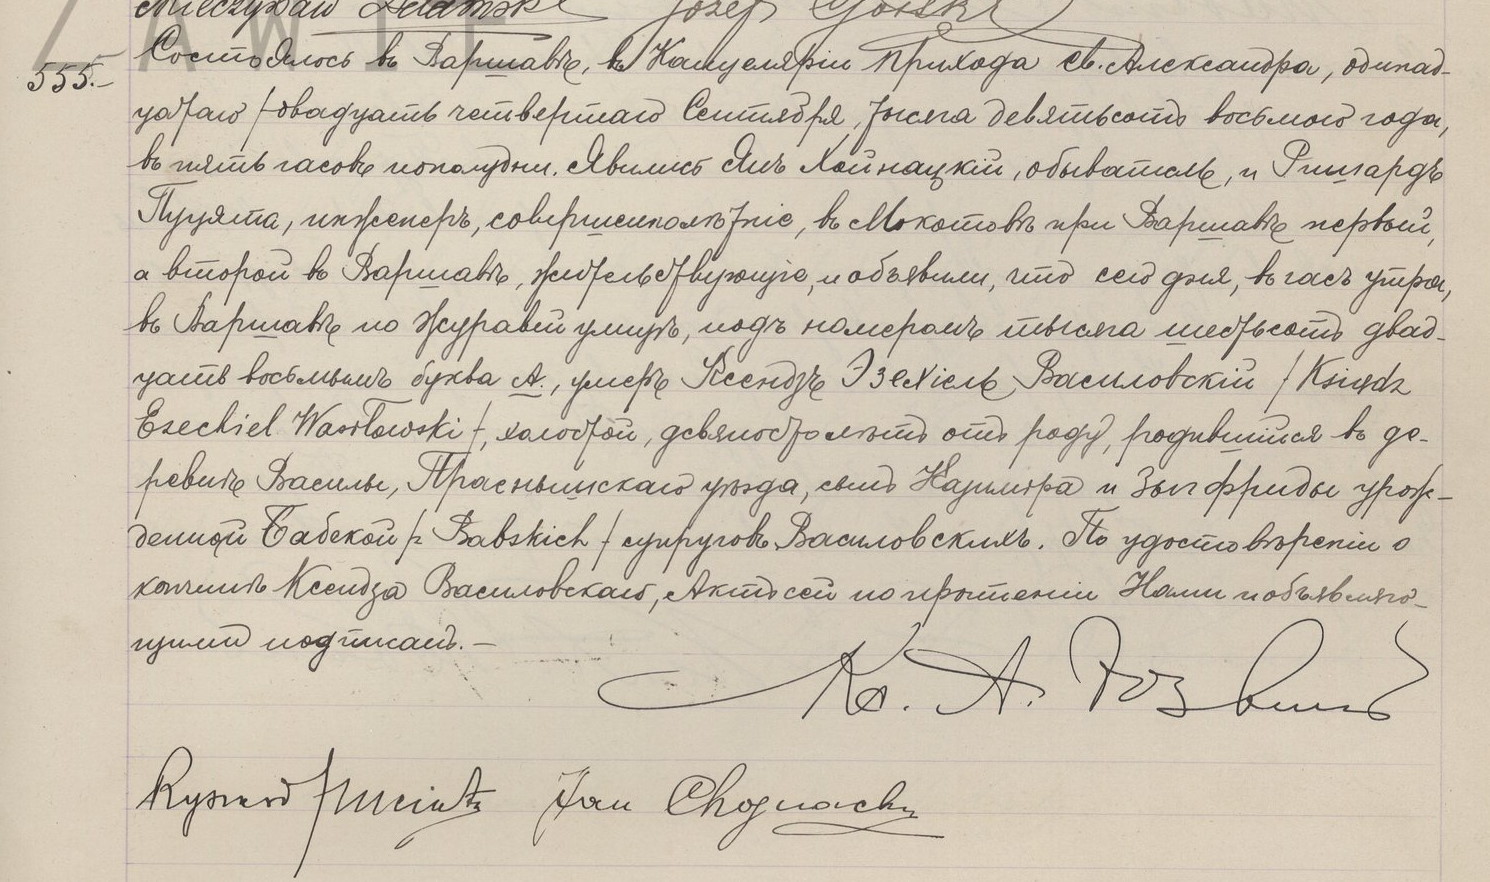 Mieczysław Adamski Józef Górski
555.-
Состоялось въ Варшавѣ, въ Канцеляріи прихода св. Александра, одинад-
цатаго / двадцать четвертаго Сентября, тысяча девятьсотъ восьмого года,
въ пять часовъ пополудни. Явились Янъ Хойнацкій, обыватель, и Ришардъ
Пуцята, инженеръ, совершеннолѣтніе, въ Мокотовѣ при Варшавѣ первый,
а второй въ Варшавѣ, жительствующіе, и объявили, что сего дня, въ часъ утра,
въ Варшавѣ по Журавей улицѣ, подъ номеромъ тысяча шестьсотъ двад-
цать восьмымъ буква А., умеръ Ксендзъ Эзехіель Василовскій / Ksiądz
Ezechiel Wasiłowski /, холостой, девяносто лѣтъ отъ роду, родившійся въ де-
ревнѣ Василы, Праснышскаго уѣзда, сынъ и Зыгфриды урож-
денной Бабской / z Babskich / супруговъ Василовскихъ. По удостовѣреніи о
кончинѣ Ксендза Василовскаго, Актъ сей по прочтеніи Нами и объявляю-
щими подписанъ.-
Кс. А.
Ryszard Jan Chojnacki